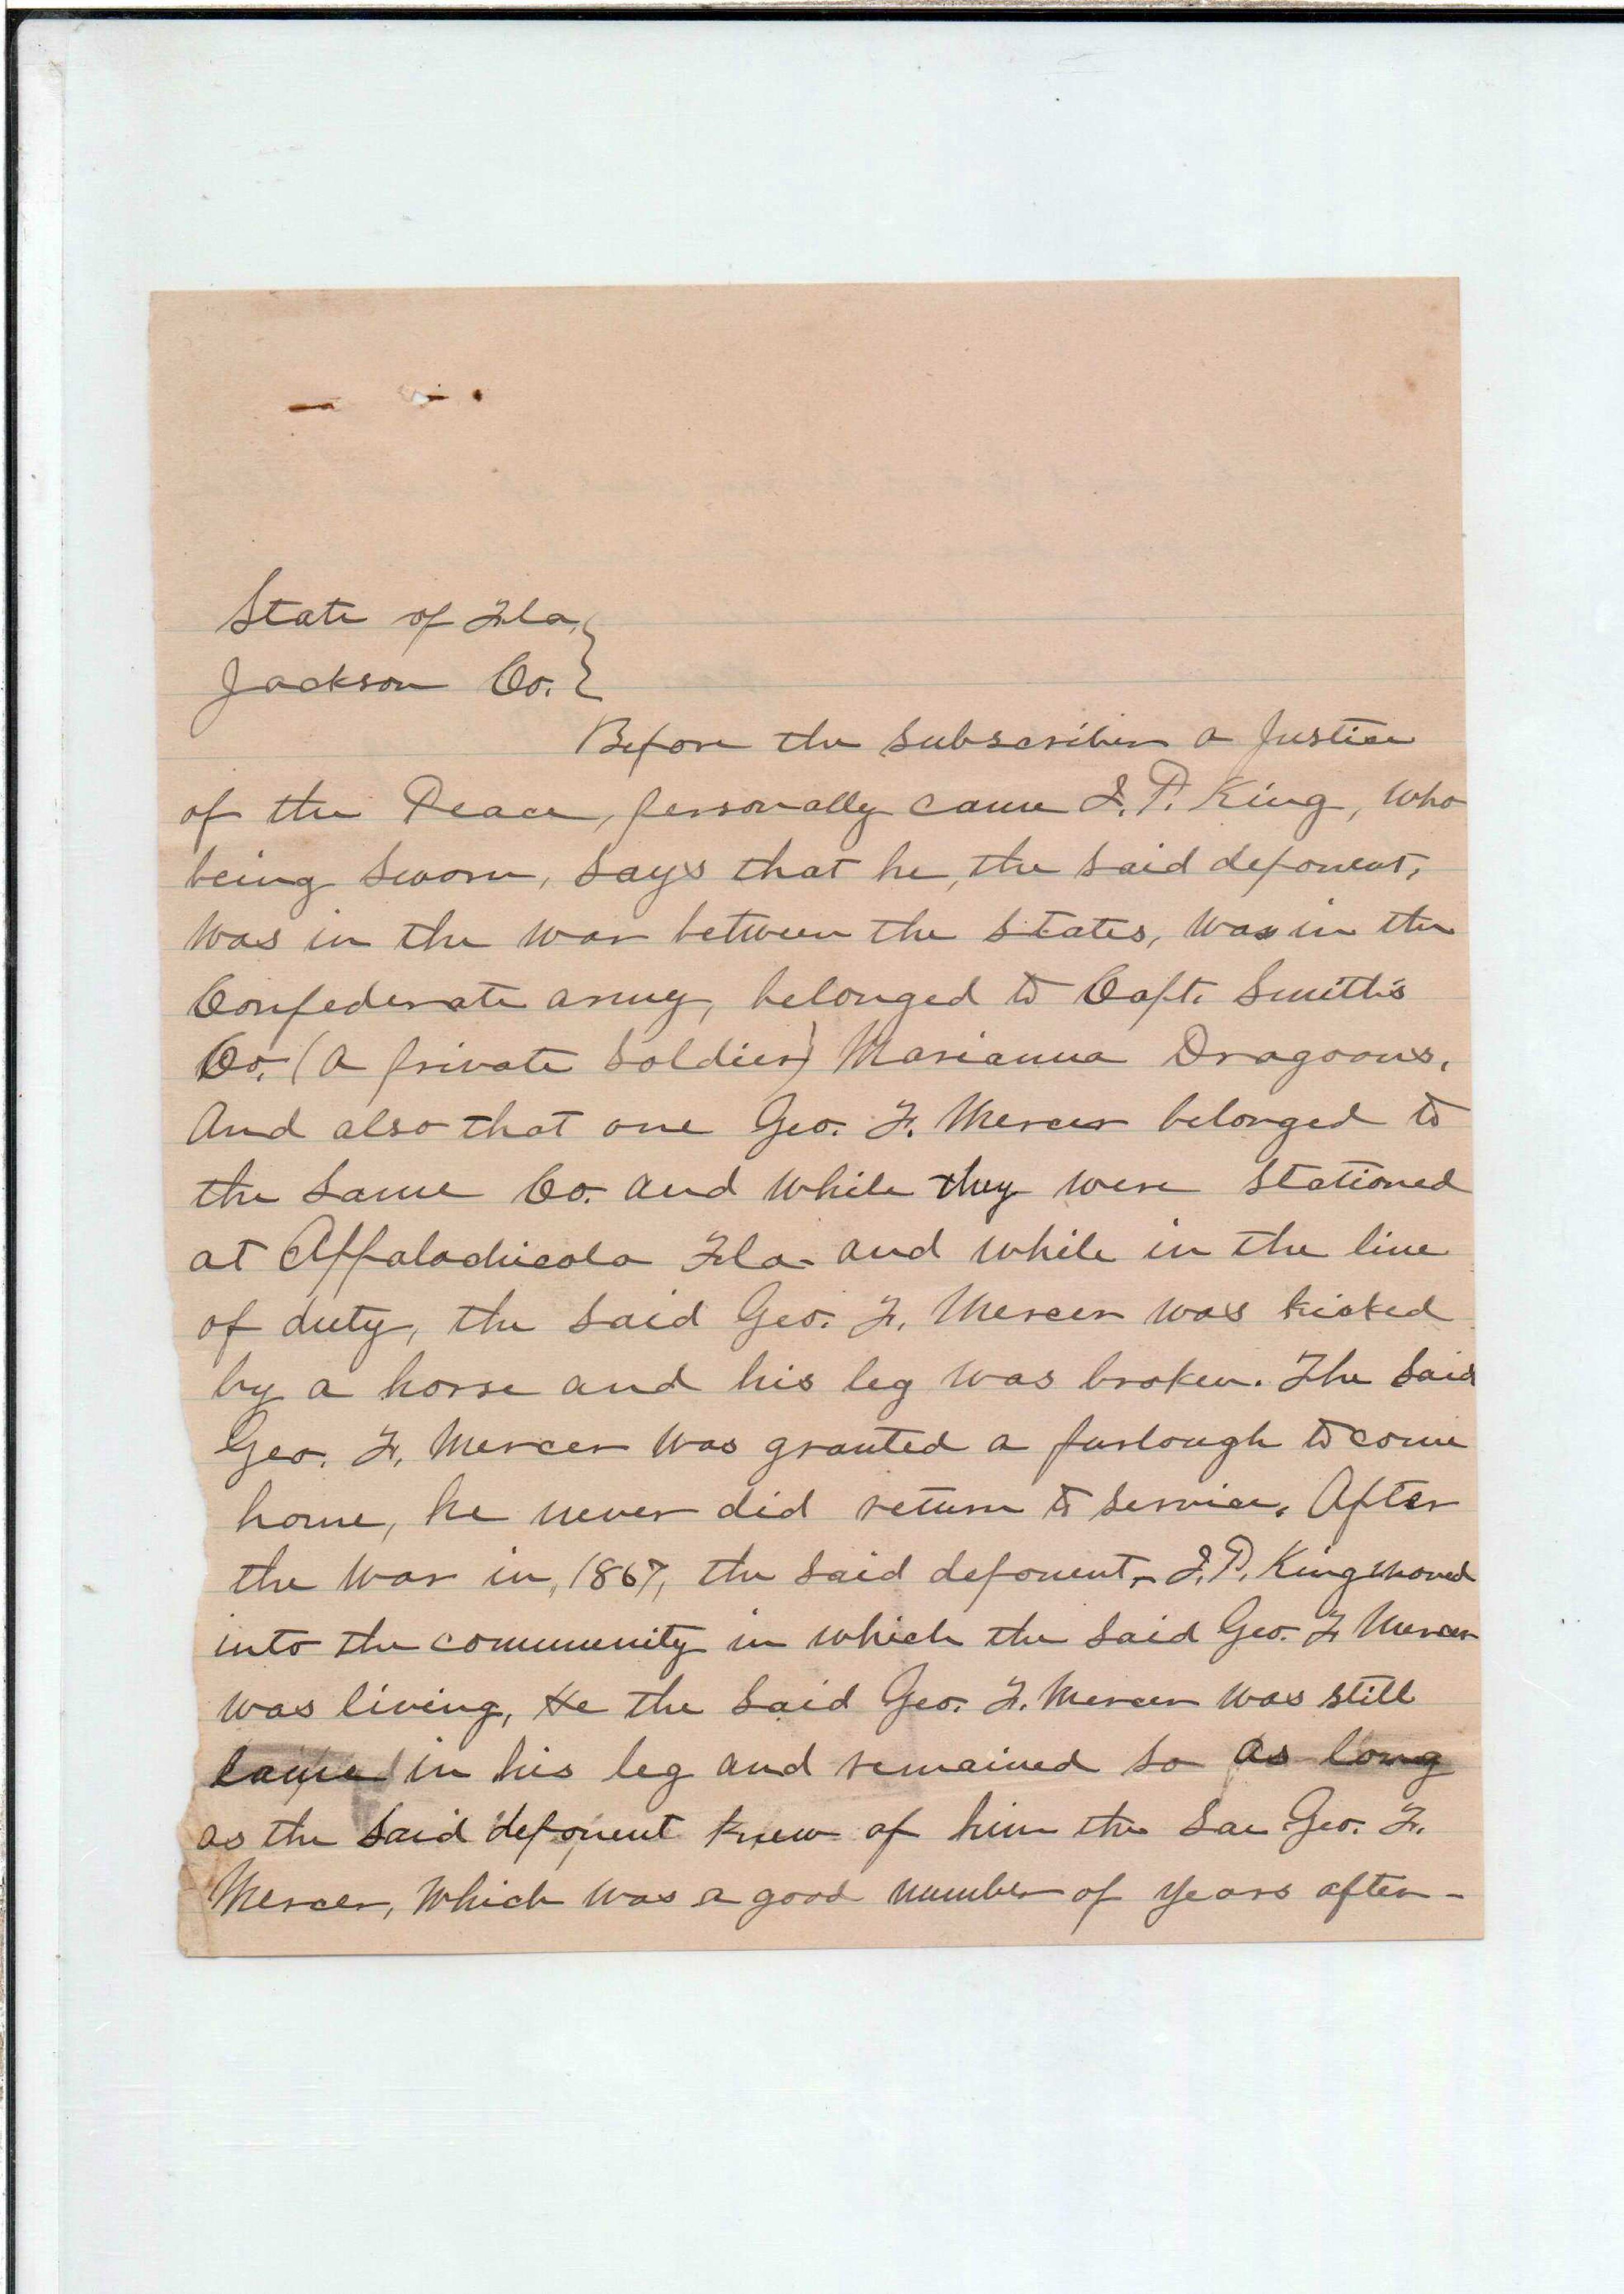 State of Fla. }
Jackson Co. }
Before the subscriber a Justice
of the Peace, personally came I. P. King, who
being sworn, says that he, the said deponent,
was in the war between the States, was in the
Confederate army, belonged to Capt. Smith's
Co. (a private soldier) Marianna Dragoons.
And also that one Geo. F. Mercer belonged to
the same Co. and while they were stationed
at Appalachicola Fla. and while in the line
of duty, the said Geo. F. Mercer was kicked
by a horse and his leg was broken. The said
Geo. F. Mercer was granted a furlough to come
home, he never did return to service. After
the war in, 1867, the said deponent, I. P. King moved
into the community in which the said Geo. F Mercer
was living, He the said Geo. F. Mercer was still
lame in his leg and remained so as long
as the said deponent knew of him the Sai Geo. F.
Mercer, which was a good number of years after-